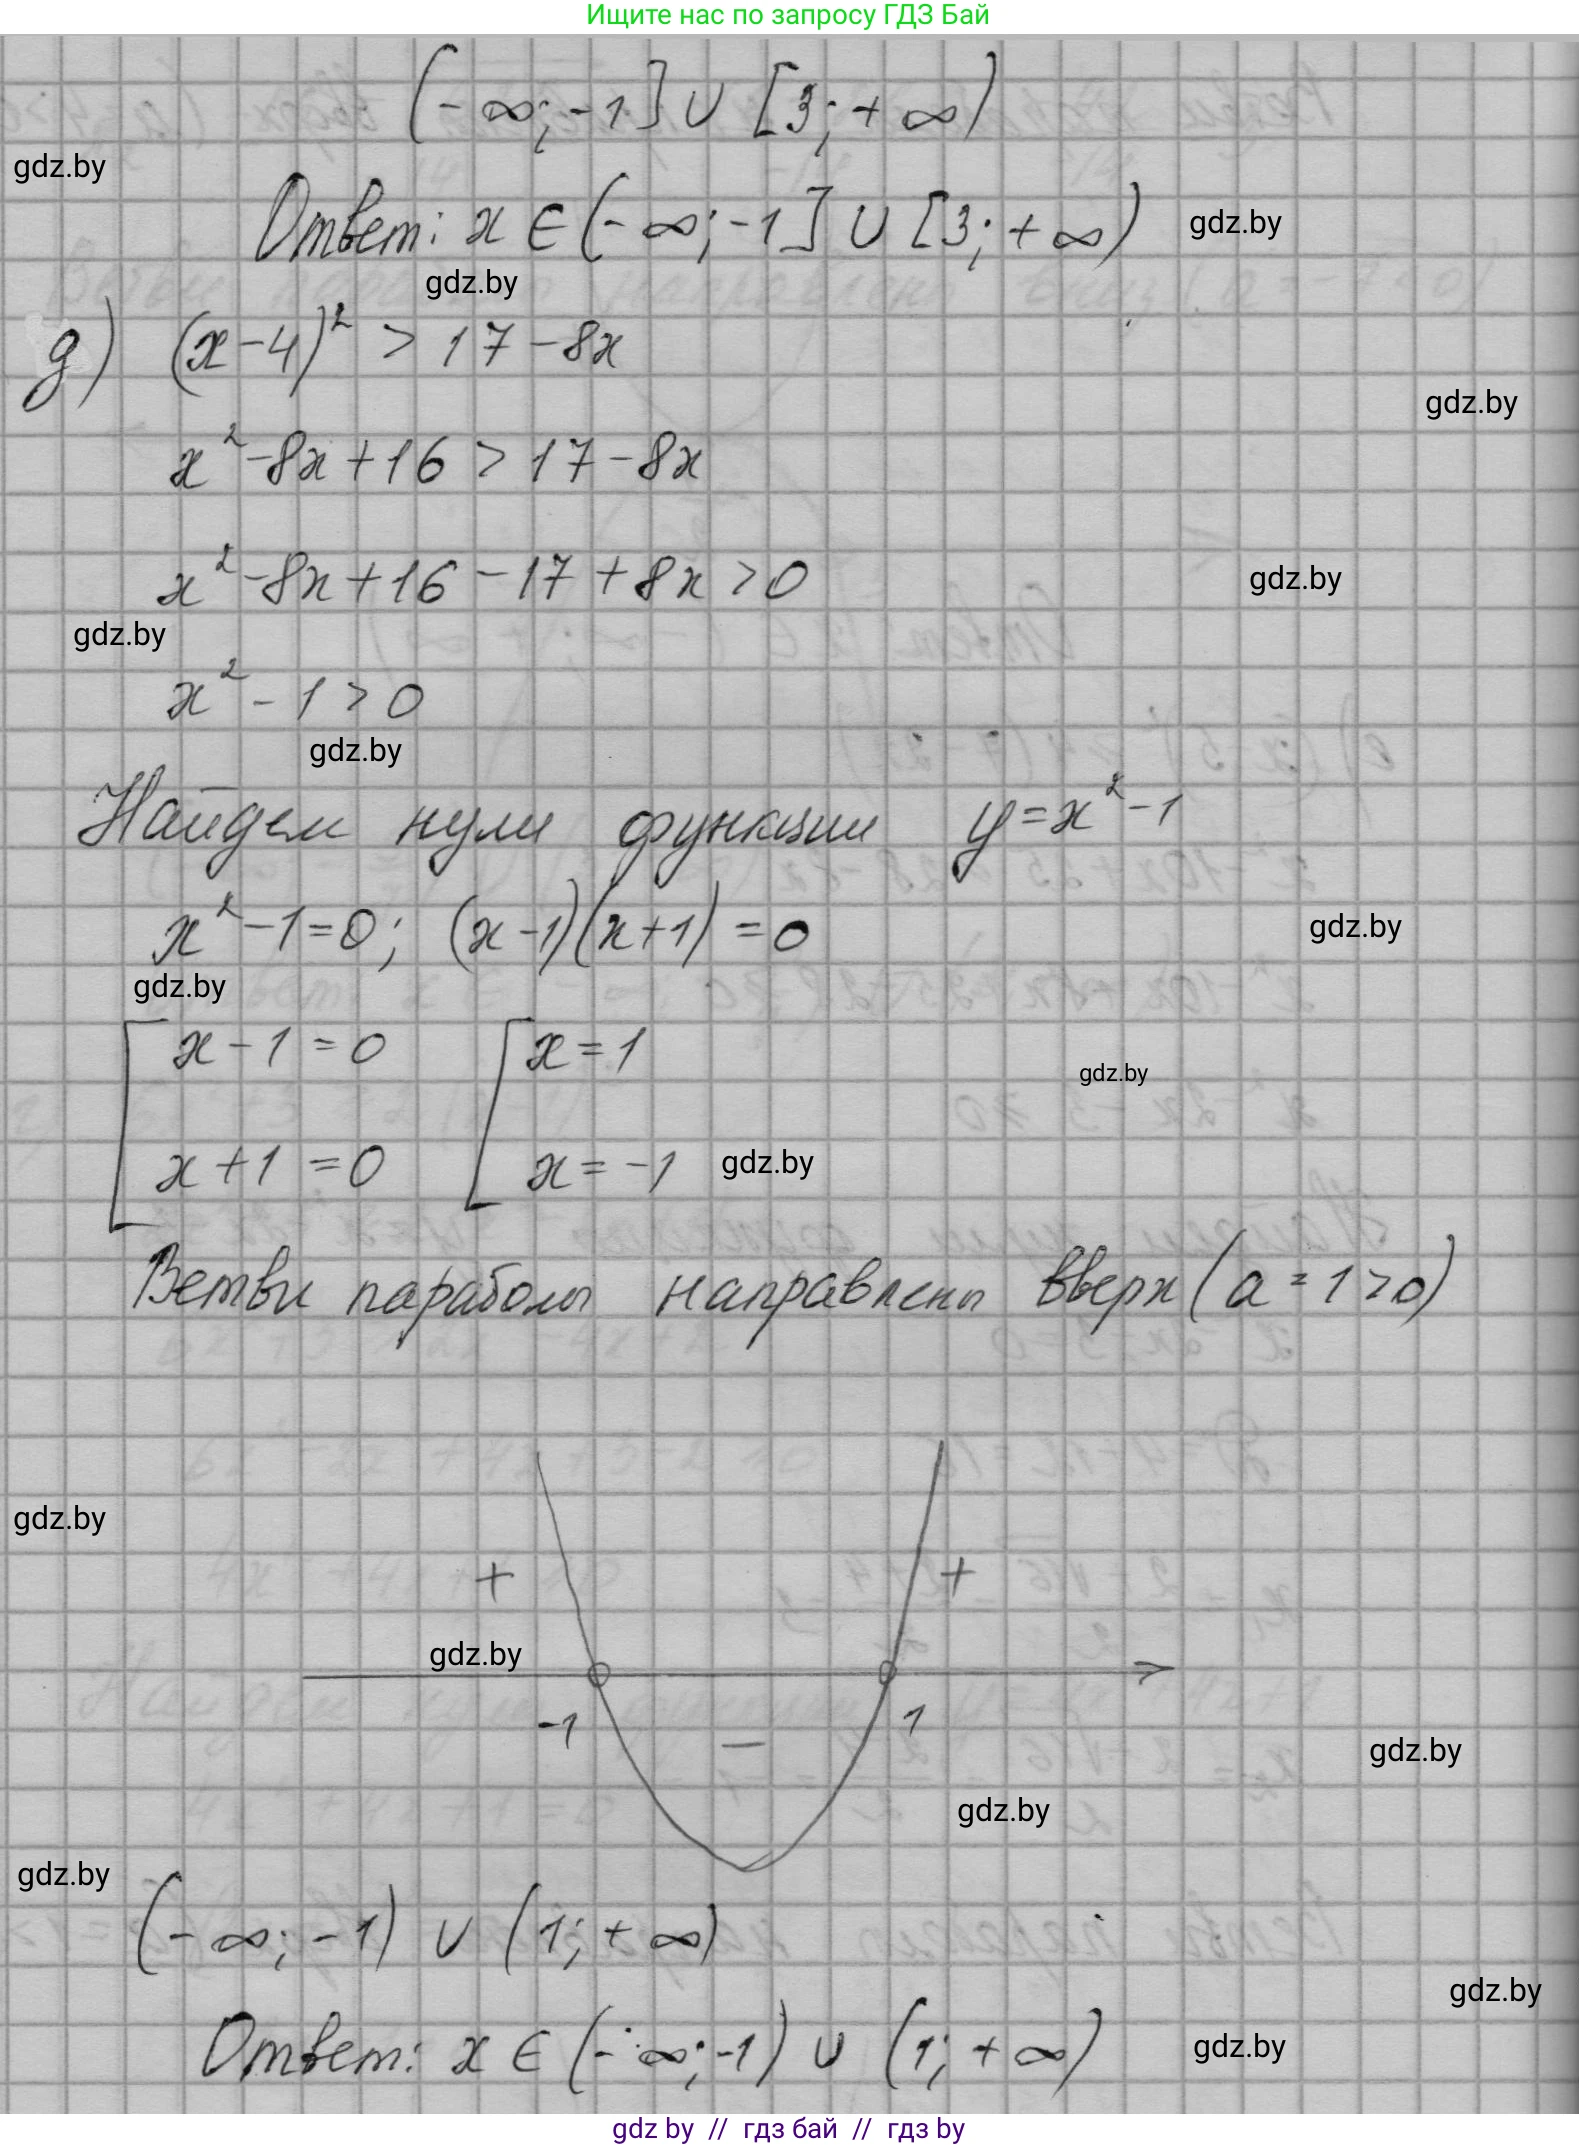 Ищите нас по запросу ГДЗ Бай
(-∞; -1] ∪ [3; +∞)
gdz.by
Ответ: x ∈ (-∞; -1] ∪ [3; +∞)
gdz.by
gdz.by
д) (x-4)² > 17 - 8x
gdz.by
x² - 8x + 16 > 17 - 8x
x² - 8x + 16 - 17 + 8x > 0
gdz.by
gdz.by
x² - 1 > 0
gdz.by
Найдем нули функции y = x² - 1
x² - 1 = 0; (x-1)(x+1) = 0
gdz.by
gdz.by
[ x - 1 = 0 [ x = 1
gdz.by
x + 1 = 0 x = -1
gdz.by
Ветви параболы направлены вверх (a = 1 > 0)
gdz.by
+ +
gdz.by
-1 1
−
gdz.by
gdz.by
gdz.by
(-∞; -1) ∪ (1; +∞)
gdz.by
Ответ: x ∈ (-∞; -1) ∪ (1; +∞)
gdz.by
gdz by // гдз бай // гдз by